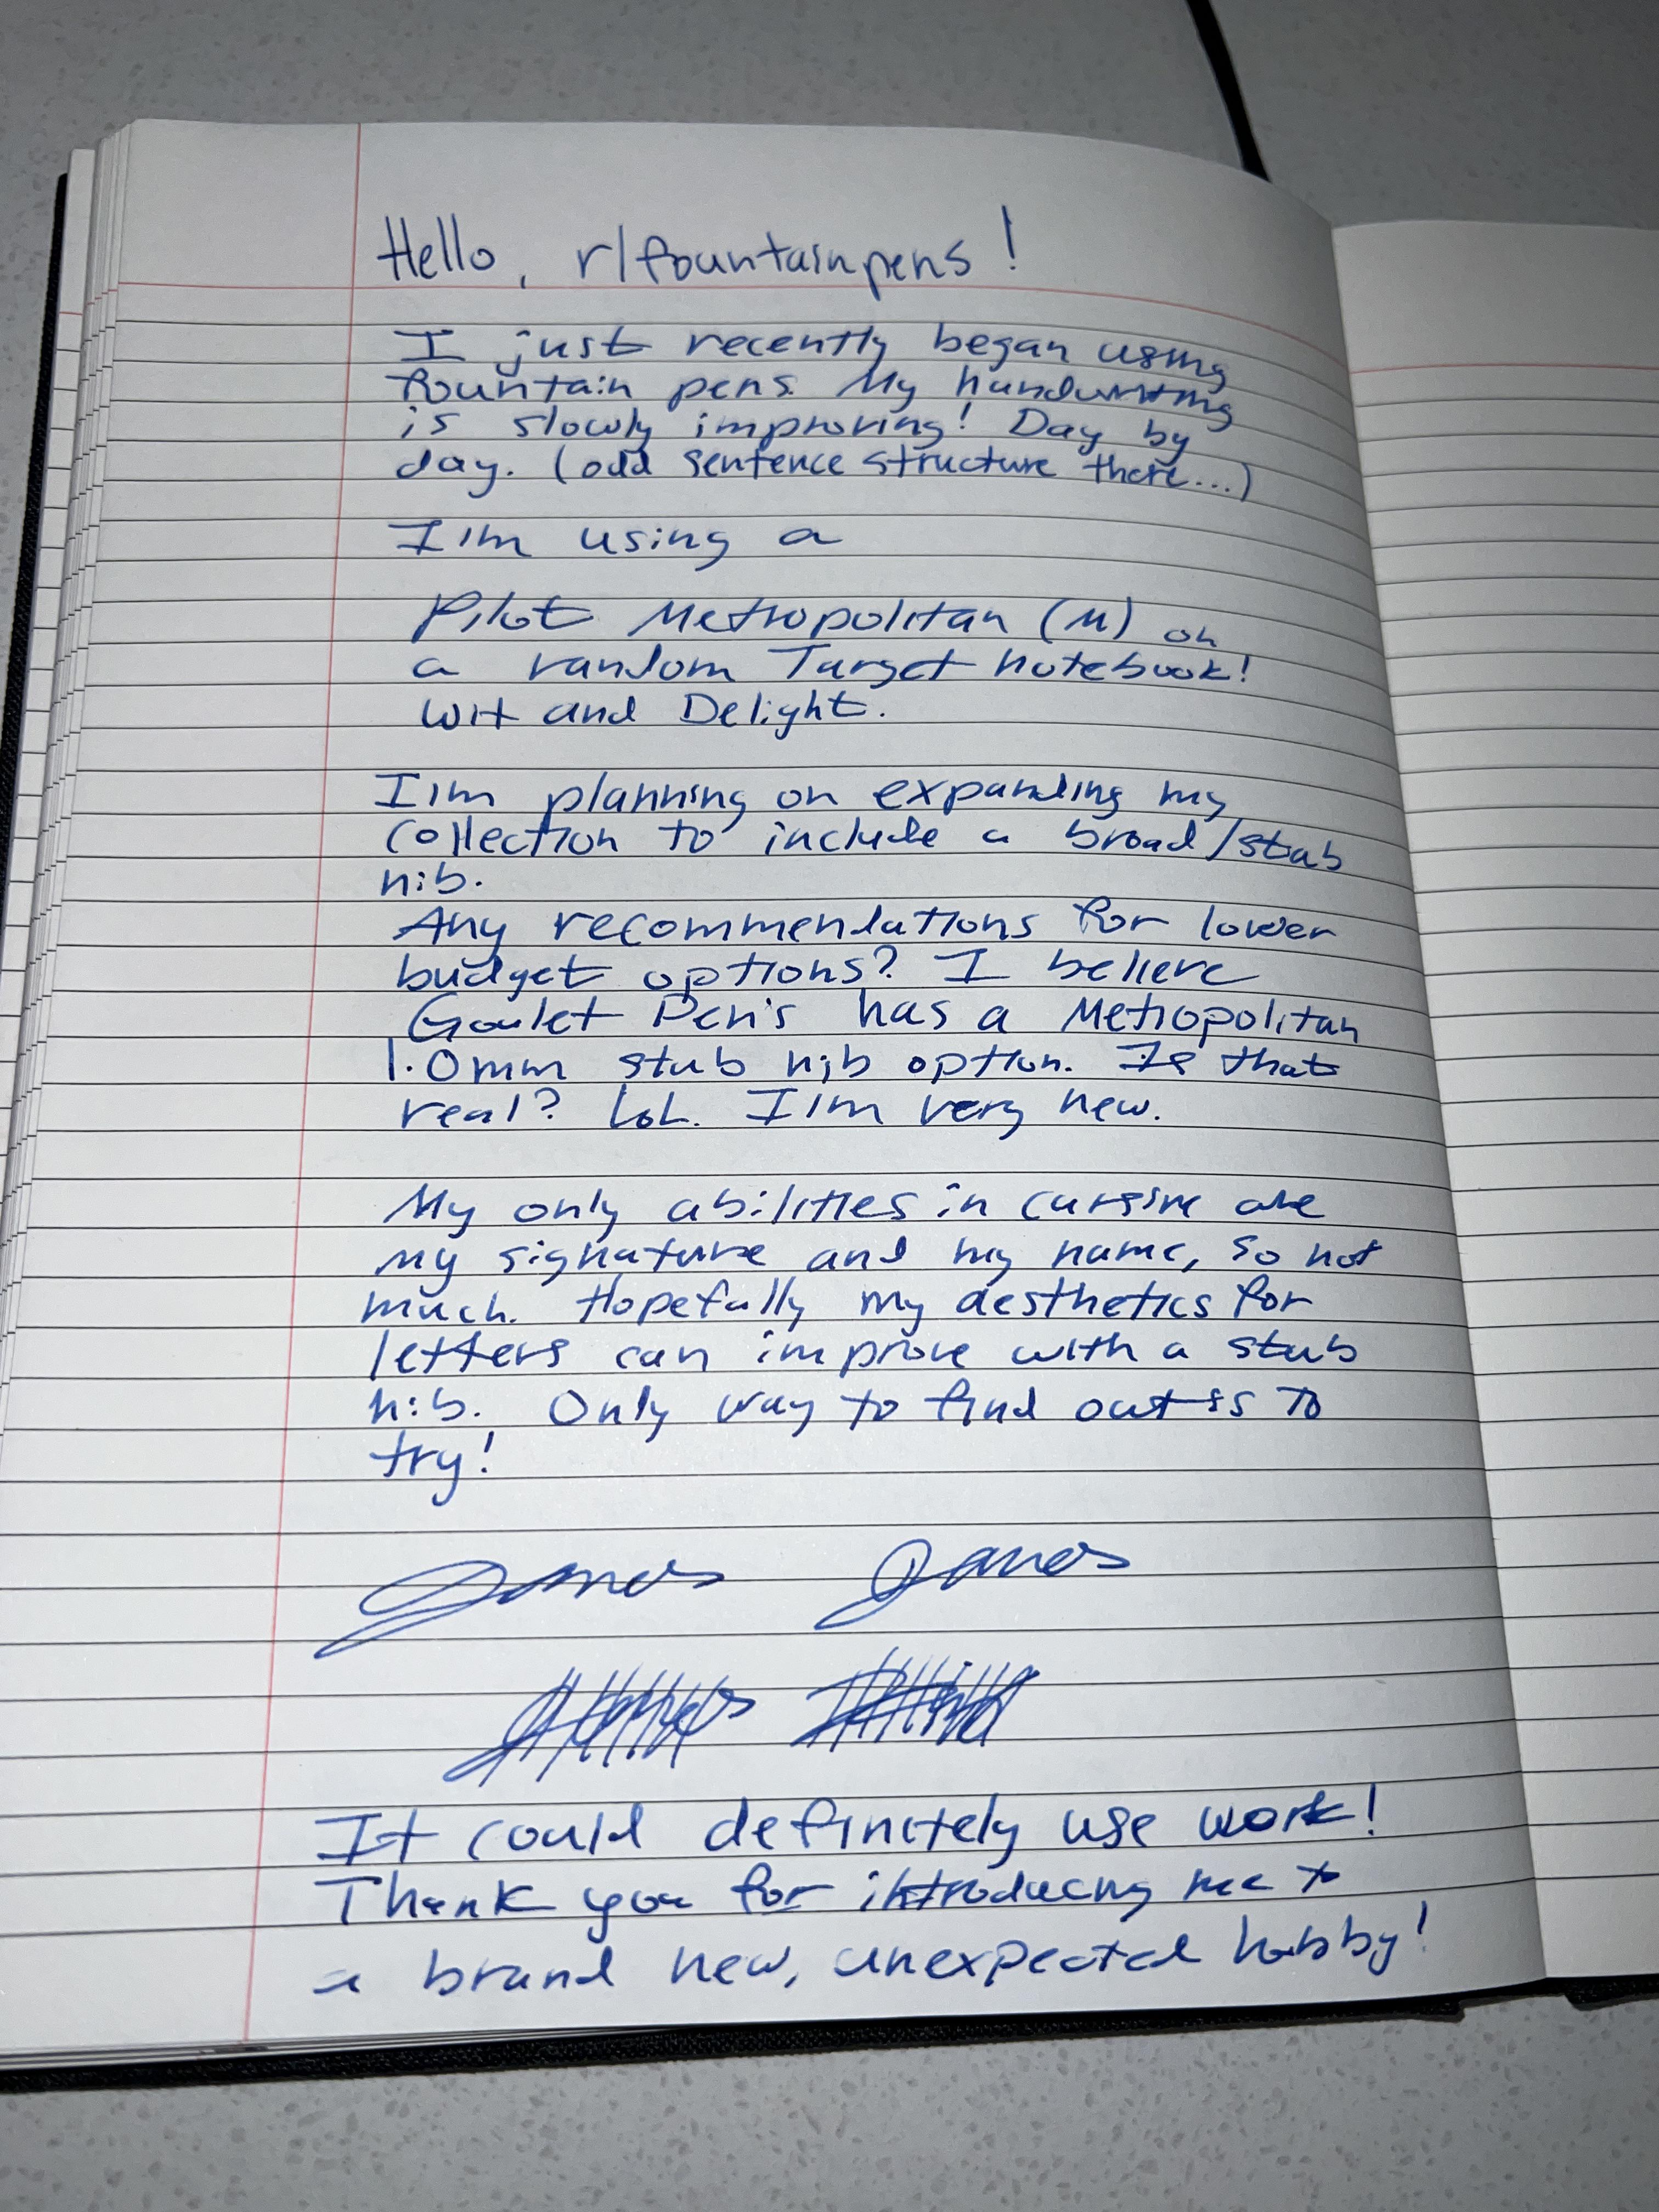 Hello, r/fountainpens!
I just recently began using
fountain pens. My handwriting
is slowly improving! Day by
day. (odd sentence structure there...)
I'm using a
Pilot Metropolitan (M) on
a random Target notebook!
Wit and Delight.
I'm planning on expanding my
collection to include a broad/stub
nib.
Any recommendations for lower
budget options? I believe
Goulet Pen's has a Metropolitan
1.0mm stub nib option. Is that
real? LoL. I'm very new.
My only abilities in cursive are
my signature and my name, so not
much. Hopefully my aesthetics for
letters can improve with a stub
nib. Only way to find out is to
try!
It could definitely use work!
Thank you for introducing me to
a brand new, unexpected hobby!